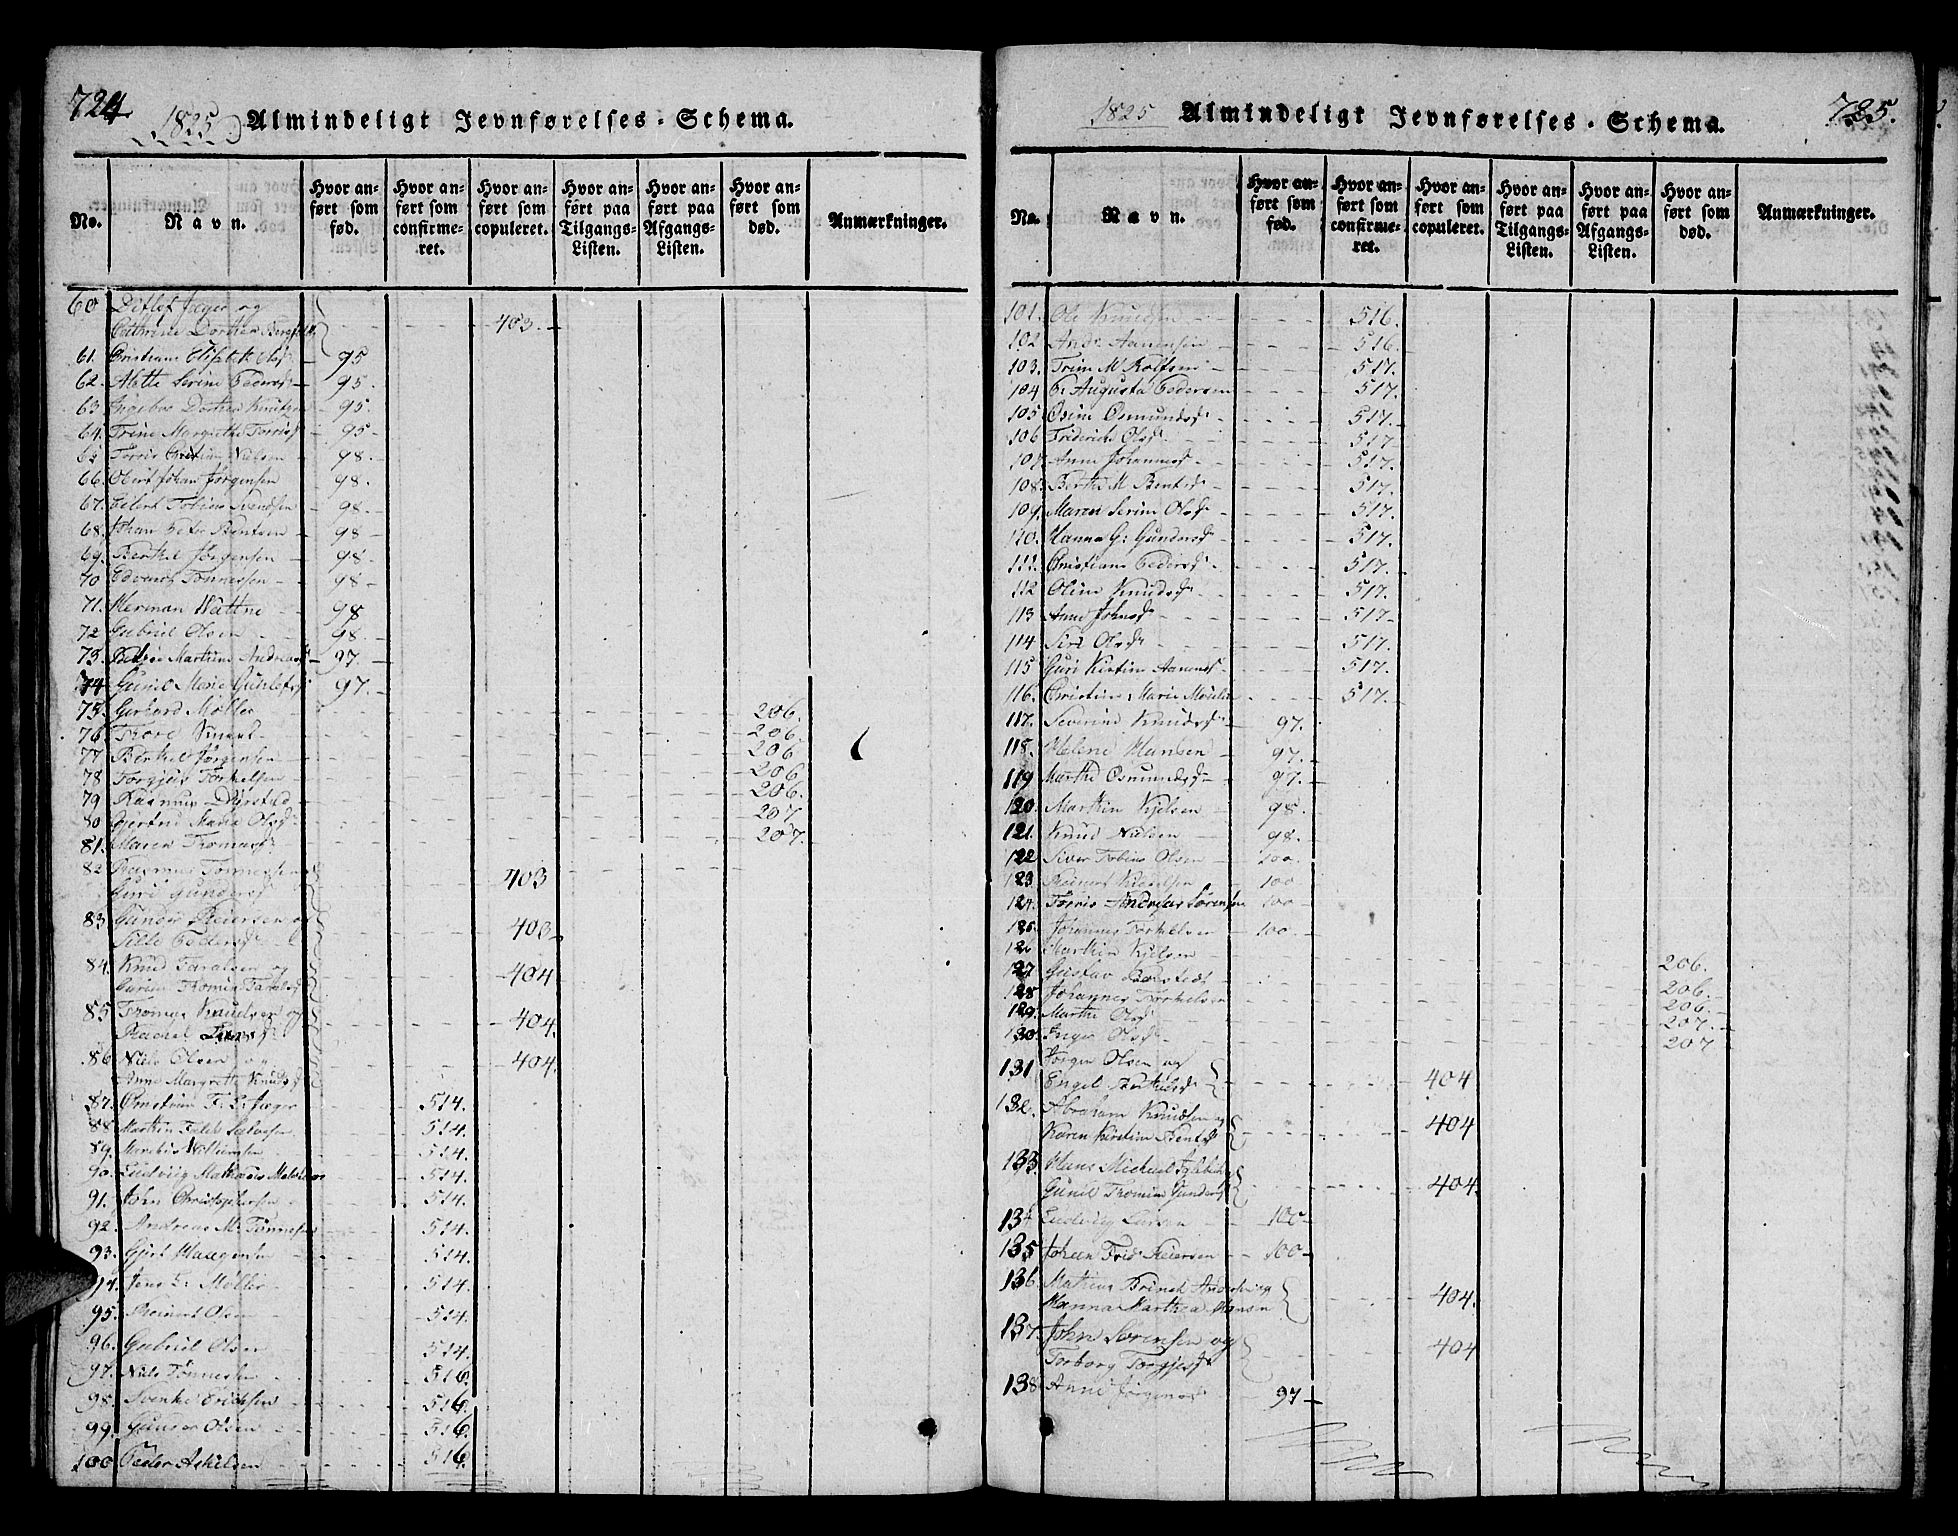 724
1825 Almindeligt Jevnførelses-Schema.
No. Navn. Hvor anført som fød. Hvor anført som confirmeret. Hvor anført som copuleret. Hvor anført paa Tilgangs-Listen. Hvor anført paa Afgangs-Listen. Hvor anført som død. Anmærkninger.
60 Ditlef Jæger og
Cathrine Dorthea 403.
61. Christiane Elisabeth Olsd 95
62. Alette Serine Pedersd 95.
63 Ingebor Dorthea Knutzen 95.
64. Trine Margrethe Torrisd 95
65 Torris Christian Nielsen 98.
66. Olert Johan Jørgensen 98.
67. Eilert Tobias Svendsen 98.
68. Johan Peter Bentsen 98
69. Berthel Jørgensen 98.
70 Edvard Tønnessen 98
71. Herman Wattne 98
72 Gabriel Olsen 98.
73. Martine Andreasd 97.
74 Gunil Marie 97.
75. Gerhard Møller 206.
76 Thore Knuds 206.
77 Berthel Jørgensen 206
78 Torgjus Torkelsen 206
79 Rasmus 206.
80 Gjertrud Maria Olsd 207
81. Maren Thomasd 207.
82 Rasmus Tønnessen
Guri Gundersd 403
83 Gunder Reiersen og
Sille Pedersd 403
84. Knud Taralsen og
Thomine Taralsd 404
85 Thomas Knudsen og
Rachel 404.
86 Niels Olsen og
Anne Margrethe Knudsd 404.
87. Christian F. L. Jæger 514.
88 Marthin Salvesen 514.
89. Marcus Willumsen 514.
90. Ludvig Mathias 514.
91. John Christophersen 514.
92. Andreas M. Tønnesen 514.
93. Gjert Haagensen 514.
94. Jens L. Møller 514.
95. Reinert Olsen 514.
96. Gabriel Olsen 514.
97. Niels Tønnesen 516.
98. Svenke Erichsen 516.
99. Gunder Olsen 516.
100 Peder Askilsen 516.
1825 Almindeligt Jevnførelses-Schema. 725.
No. Navn. Hvor anført som fød. Hvor anført som confirmeret. Hvor anført som copuleret. Hvor anført paa Tilgangs-Listen. Hvor anført paa Afgangs-Listen. Hvor anført som død. Anmærkninger.
101. Ole Knudsen 516.
102 Andr. Aanensen 516.
103. Trine M Rolfsen 517.
104 Augusta Pedersen 517.
105 Osine Osmundsd 517.
106 Friderich Olsd 517
107. Anne Johannesd 517.
108. Berthe M Bentsd 517.
109. Maren Serine Olsd 517.
110. Hanna G: Gundersd 517.
111. Christiane Pedersd 517.
112 Oline Knudsd 517.
113 Anne Johnsd 517
114 Siri Olsd 517.
115 Guri Kirstine Aanensd 517.
116. Christine Marie 517.
117. Severine Knudsd 97.
118. Helene Hansen 97.
119 Marthe Osmundsd 97.
120. Marthin Kjelsen 98.
121. Knud Nielsen 98.
122 Siver Tobias Olsen 100.
123. Reinert 100
124. Torris Andreas Sørensen 100
125. Johannes Torkelsen 100.
126 Marthin Kjelsen
127 Gustav 206.
128 Johannes Torkelsen 206.
129. Marthe Olsd 206.
130. Inger Olsd 207.
207
131 Jørgen Olsen og
Engel 404
132. Abraham Knudsen og
Karen Kirstine Bentsd 404
133 Hans Michael
Gunil Thomine Gundersd 404.
134 Ludvig Larsen 100
135 Johan Frid Reiersen 100
136 Mathias
Hanna Marthea Hansen 404.
137. John Sørensen og
Torborg Torgjusd 404
138 Anne 97